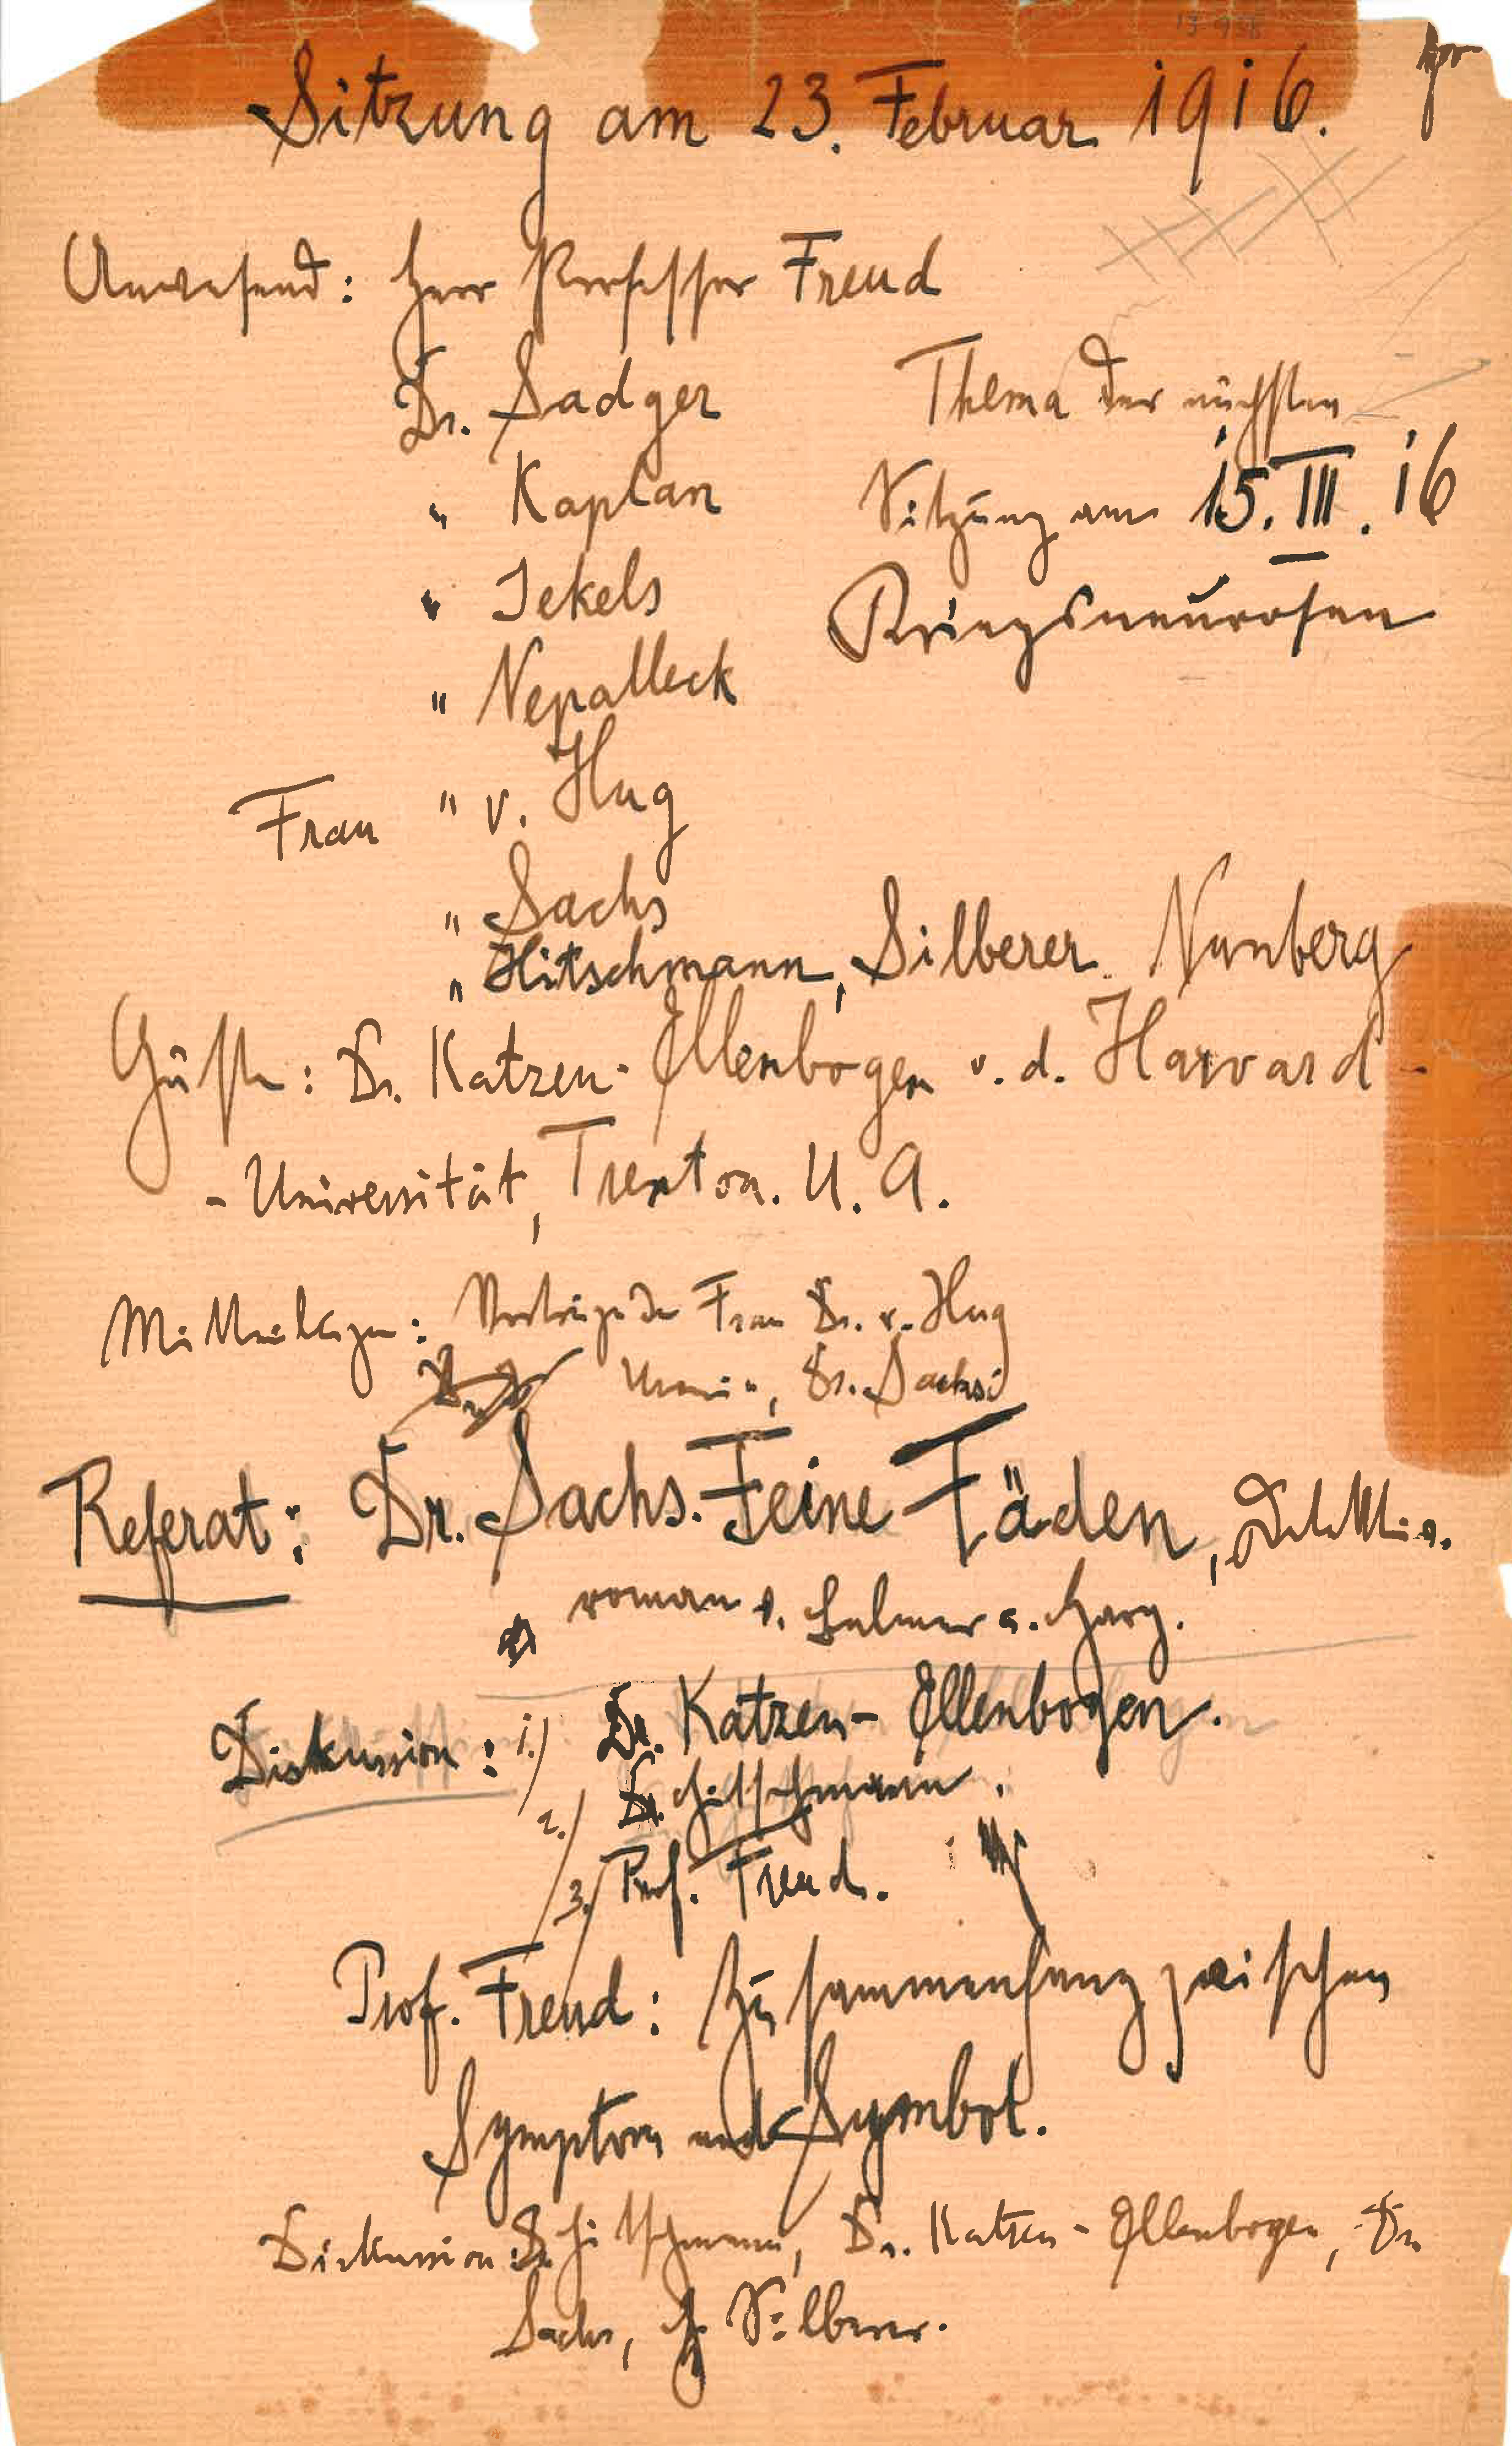 Sitzung am 23. Februar 1916.
Anwesend: Herr Professor Freud
Dr. Sadger
" Kaplan
" Jekels
" Nepalleck
Frau " v. Hug
" Sachs
" Hitschmann, Silberer. Nunberg
Thema der nächsten
Sitzung am 15. III. 16
Kriegsneurosen
Gäste: Dr. Katzen-Ellenbogen v. d. Harvard-
-Universität, Trenton. U. A.
Mitteilungen: Vorträge der Frau Dr. v. Hug
Dr. Sachs
Referat: Dr. Sachs. Feine Fäden, Detektiv-
roman v.
Diskussion: 1.) Dr. Katzen-Ellenbogen.
2.) Dr. Hitschmann.
3.) Prof. Freud.
Prof. Freud: Zusammenhang zwischen
Symptom und Symbol.
Diskussion: Dr. Hitschmann, Dr. Katzen-Ellenbogen, Dr.
Sachs, H. Silberer.